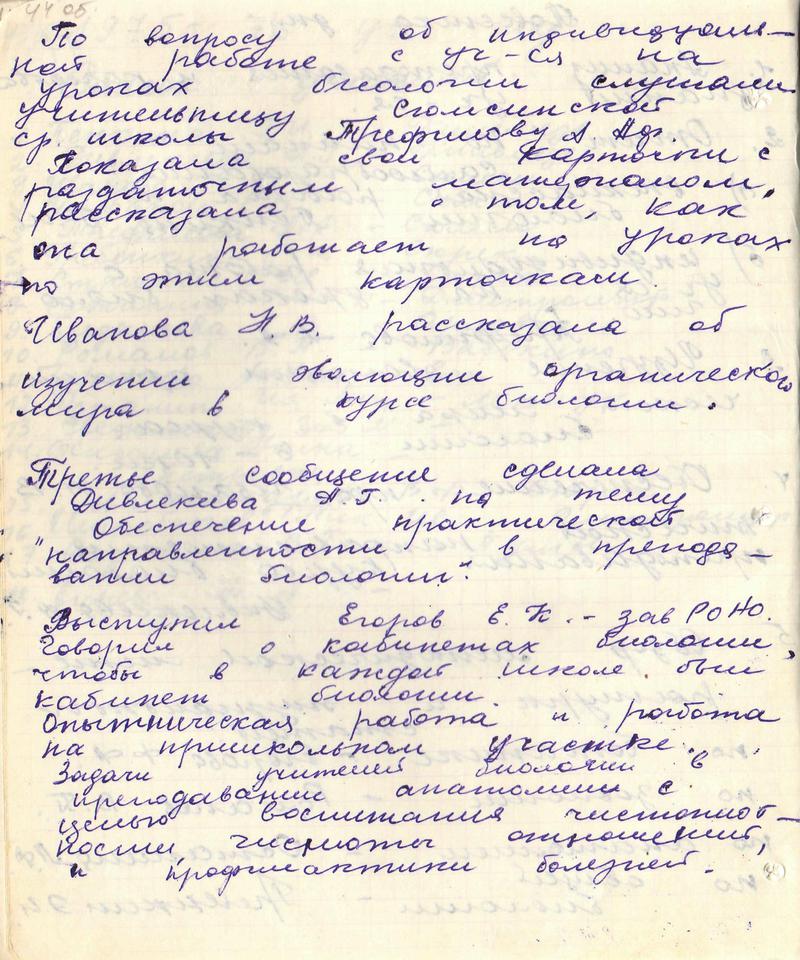 По вопросу об индивидуаль-
ной работе с уч-ся на
уроках биологии слушали
учительницу Сюмсинской
ср. школы Трефилову А. Аф.
Показала свои карточки с
раздаточным материалом,
рассказала о том, как
она работает на уроках
по этим карточкам.
Иванова Н. В. рассказала об
изучении эволюции органического
мира в курсе биологии.
Третье сообщение сделала
Дивлекеева А. Г. на тему
Обеспечение практической
"направленности в препода-
вании биологии".
Выступил Егоров Е. К. - зав РОНО.
Говорил о кабинетах биологии,
чтобы в каждой школе был
кабинет биологии.
Опытническая работа и работа
на пришкольном участке.
Задачи учителей биологии в
преподавании анатомии с
целью воспитания чистоплот-
ности чистоты отношений,
и профилактики болезней.